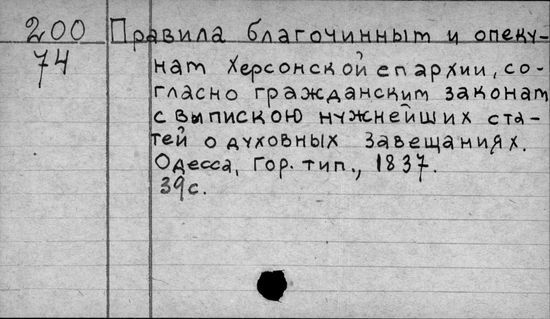 200 Правила благочинным и опеку-
74 нам Херсонской епархии, со-
гласно гражданским законам
с выпискою нужнейших ста-
тей о духовных завещаниях.
Одесса, Гор. тип., 1837.
39с.